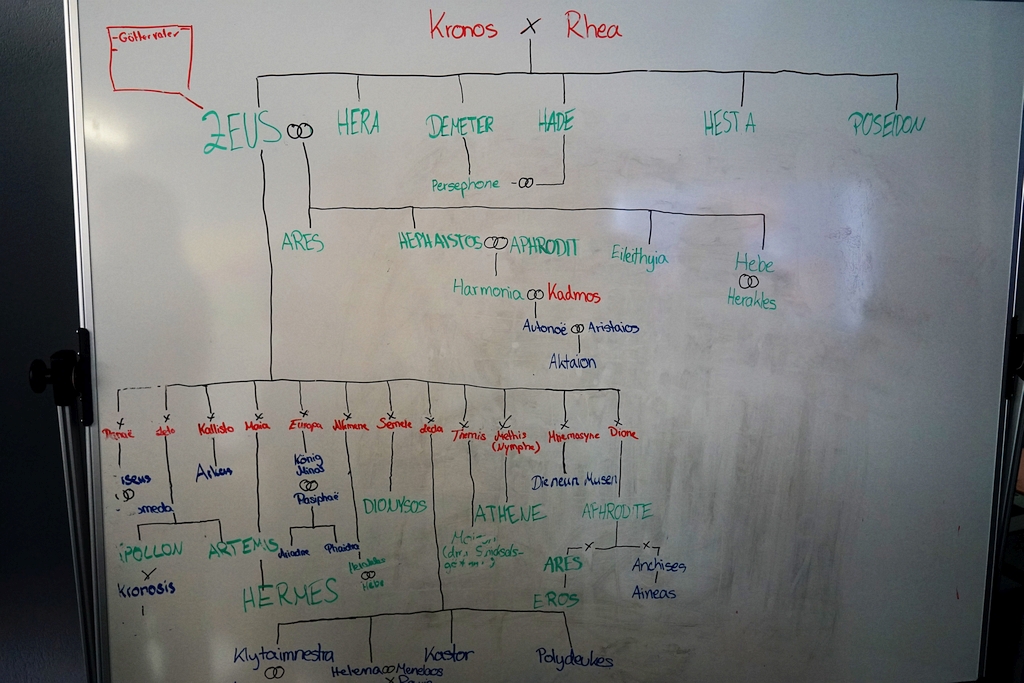 Kronos X Rhea
- Göttervater
-
ZEUS HERA DEMETER HADE HESTA POSEIDON
Persephone
ARES HEPHAISTOS APHRODIT Eileithyia Hebe
Herakles
Harmonia Kadmos
Autonoë Aristaios
Aktaion
x x x x x x x x x x x x
Kallisto Maia Europa Alkmene Semele Leda Themis Methis Mnemosyne Dione
(Nymphe)
König
Minos
Pasiphaë
DIONYSOS ATHENE Die neun Musen APHRODITE
omeda
POLLON ARTEMIS Ariadne Phaidra
Herakles
Hebe
x x
ARES Anchises
X
Kronosis HERMES EROS Aineas
Klytaimnestra Helena Menelaos Kastor Polydeukes
x